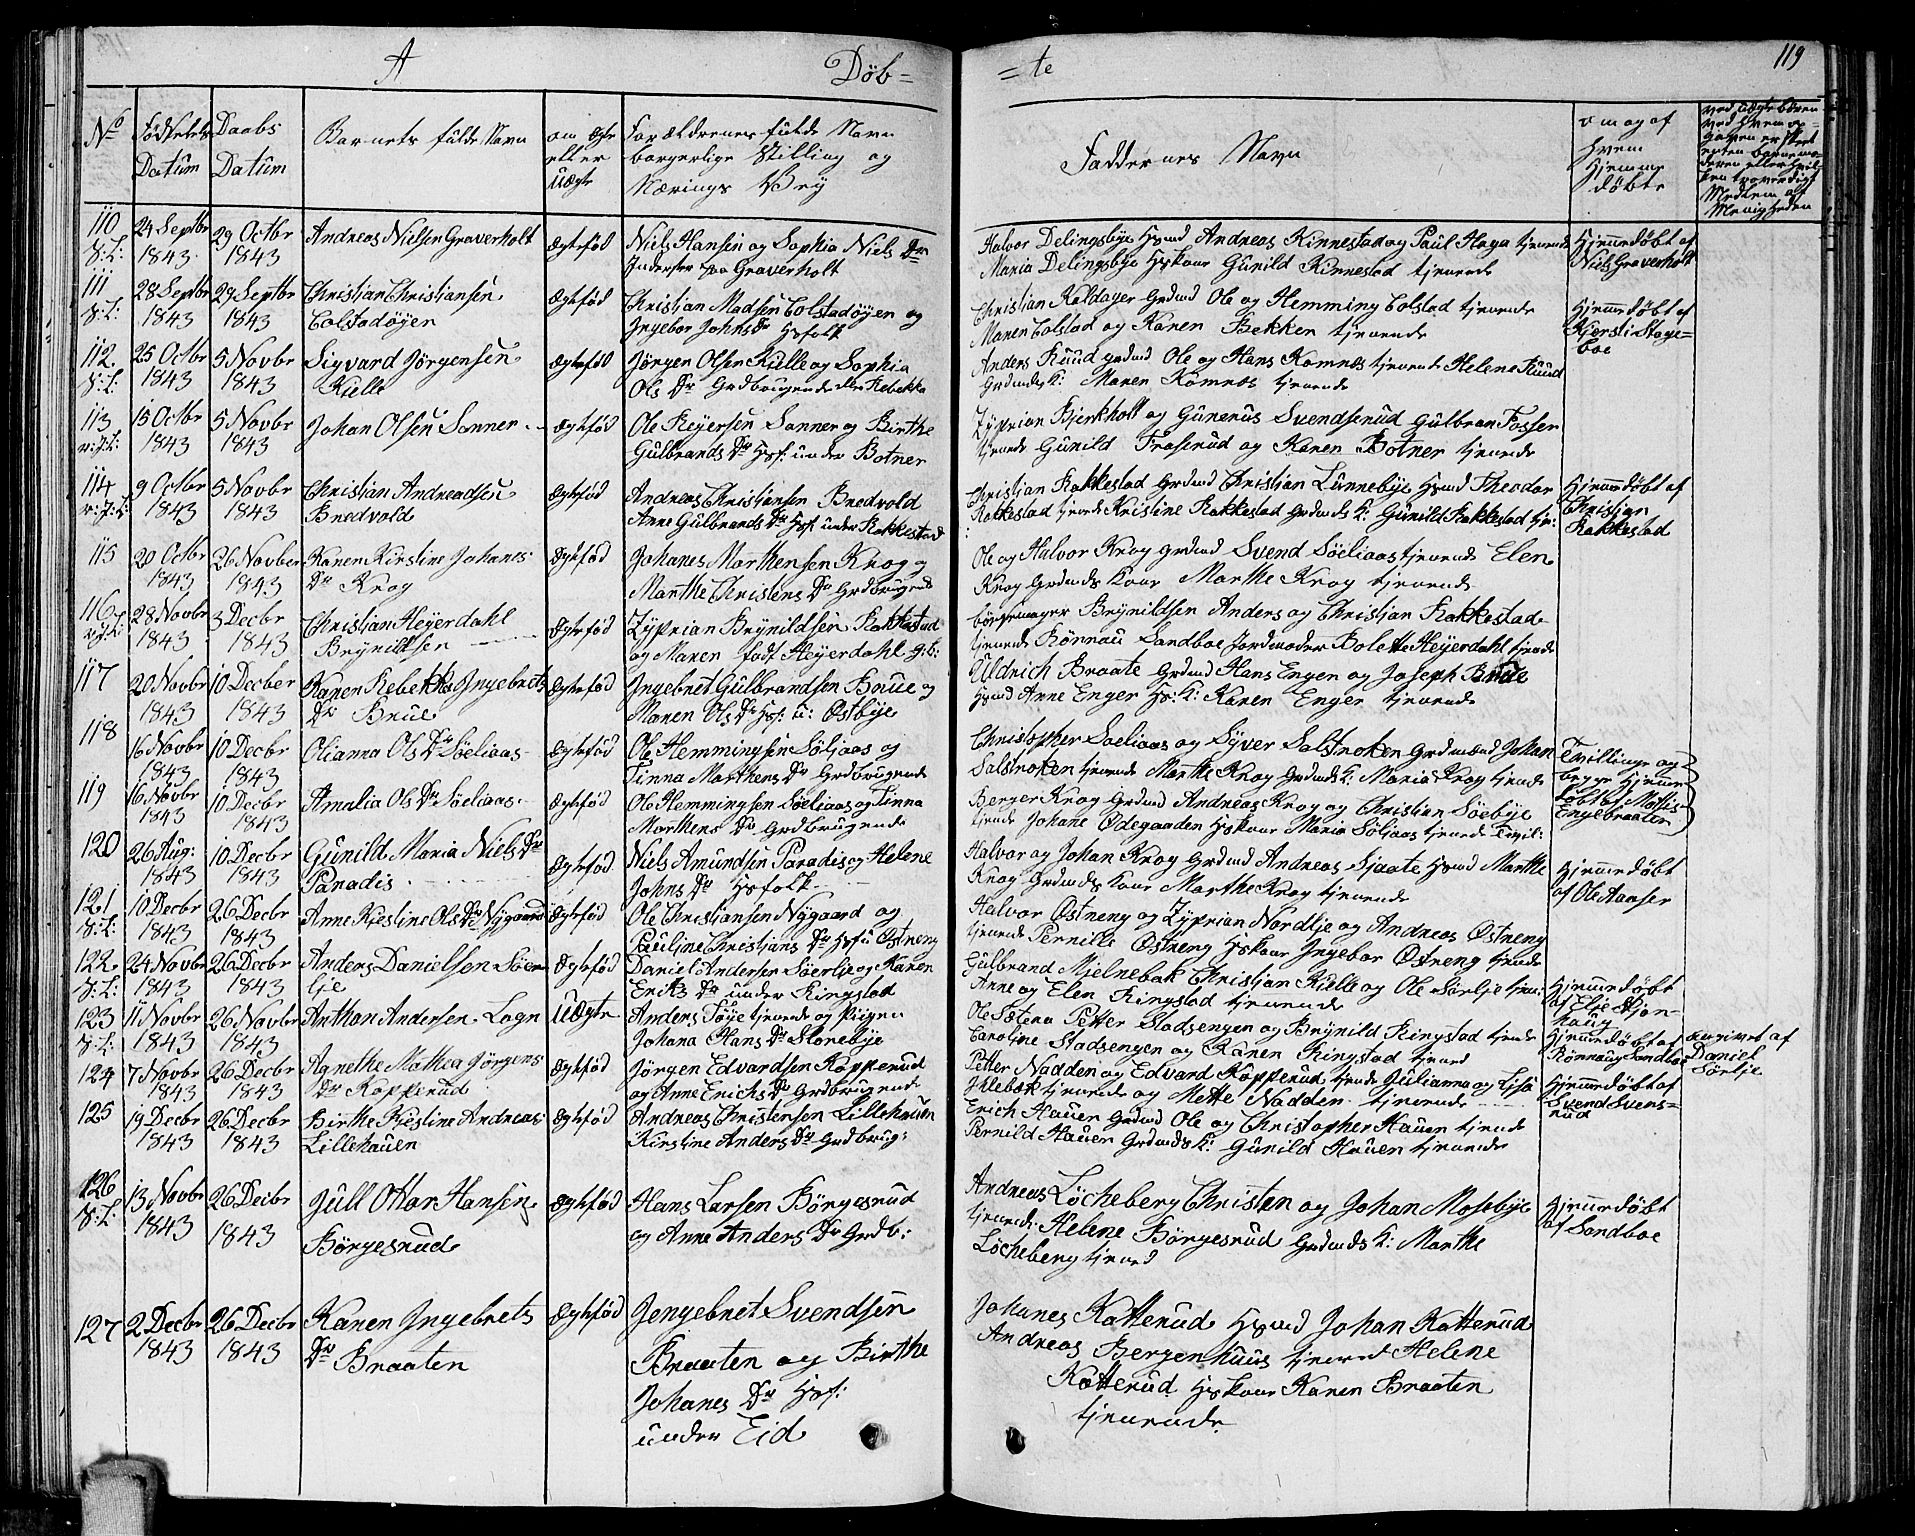 A Döb=
=te 119
No Födselets Datum
Daabs Datum
Barnets fulde Navn
om ægte eller uægte
Forældrenes fulde Navn
borgerlige Stilling og
Nærings Vey
Faddernes Navn
om og af
hvem
hjemme
döbte
110 24 Septbr 1843 29 Octbr 1843 Andreas Nielsen Graverholt Ægtefød Niels Hansen og Sophia Niels Dr
Inderster paa Graverholt
Halvor Delingsbye Hsmd Andreas Kinnestad og Paul Haga tjenende
Maria Delingsbye Hskone Gunild Kinnestad tjenende
Hjemmedøbt af
Niels Graverholt
111 28 Septbr 1843 29 Septbr 1843 Christjan Christjansen
Colstadöyen
Ægtefød Christjan Madsen Colstadöyen og
Ingebor Johns Dr Hsfolk
Christjan Kaldager Grdmd Ole og Hemming Colstad tjenende
Maren Colstad og Karen Bekken tjenende
Hjemmedøbt af
Kjersti Stage=
boe
112 25 Octbr 1843 5 Novbr 1843 Sigvard Jörgensen
Kielle
Ægtefød Jörgen Olsen Kielle og Sophia
Ols Dr Grdbrugende
Anders Ruud grdmd Ole og Hans Komnes tjenende Helene Ruud
Grdmds K: Maren Komnes tjenende
113 15 Octbr 1843 5 Novbr 1843 Johan Olsen Sonner
Ægtefød Ole Reyersen Sonner og Birthe
Gulbrands Dr Hsf: under Botner
Zyprian Bjerkholt og Gunerus Svendserud Gulbran Fosser
tjenende Gunild Fraserud og Karen Botner tjenende
114 9 Octbr 1843 5 Novbr 1843 Christjan Andreadsen
Bredvold
Ægtefød Andreas Christjansen Bredvold
Anne Gulbrands Dr Hsf under Rakkestad
Christjan Rakkestad Grdmd Christjan Lunnebye Hsmd Theodor
Rakkestad tjende Kristine Rakkestad Grdmds K: Gunild Rakkestad tje:
Hjemmedøbt af
Christjan
Rakkestad
115 20 Octbr 1843 26 Novber 1843 Karen Kirstine Johanes
Dr Krog
Ægtefød Johanes Marthensen Krog og
Marthe Christens Dr Grdbrugend
Ole og Halvor Krog Grdmd Svend Söeliaas tjenende Elen
Krog Grdmds Kone Marthe Krog tjenende
116 28 Novbr 1843 3 Decbr 1843 Christjan Heyerdahl
Brynildsen
Ægtefød Zyprian Brynildsen Rakkestad
og Maren født Heyerdahl g: b:
börsemager Brynildsen Anders og Christjan Rakkestad
tjenende Rönnau Sandboe Jordmoder Bolette Heyerdahl tjende
117 20 Novbr 1843 10 Decber 1843 Karen Rebekka Ingebrets
Dr Brue
Ægtefød Ingebret Gulbrandsen Brue og
Maren Ols Dr Hsf: u: Østbye
Uldrich Braate Grdmd Hans Engen og Joseph Brue
Hsmd Anne Enger Hs: K: Karen Enger tjenende
118 16 Novbr 1843 10 Decbr 1843 Olianna Ols Dr Söeliaas
Ægtefød Ole Hemmingsen Söljaas og
Tinna Marthens Dr Grdbrugende
Christopher Soeliaas og Syver Salsnoken Grdmænd Johan
Salsnoken tjenende Marthe Krog Grdmds K: Maria Krog tjende
Tvillinge og
begge hjemme
döbt af Mathis
Engebraaten
119 16 Novbr 1843 10 Decbr 1843 Amalia Ols Dr Söeliaas
Ægtefød Ole Hemmingsen Söeliaas og Tinna
Marthens Dr Grdbrugende
Berger Krog Grdmd Andreas Krog og Christian Söebye
tjende Johane Ødegaarden Hskone Maria Söljaas tjenende Tvil:
120 26 Aug: 1843 10 Decbr 1843 Gunild Maria Niels Dr
Paradis
Ægtefød Niels Amundsen Paradis og Helene
Johns Dr Hsfolk
Halvor og Johan Krog Grdmd Andreas Sjaate Hsmd Marthe
Krog Grdmds Kone Marthe Krog tjenende
Hjemmedøbt
af Ole Aanser
121 10 Decbr 1843 26 Decbr 1843 Anne Kiestine Ols Dr Nygaard
Ægtefød Ole Christjansen Nygaard og
Pauline Christjans Dr Hsf u Østneng
Halvor Østneng og Zyprian Nordlje og Andreas Østneng
tjenende Pernille Østneng Hskone Ingebor Østneng tjende
122 24 Novbr 1843 26 Decbr 1843 Anders Danielsen Söer
lje
Ægtefød Daniel Andersen Söerlje og Karen
Eriks Dr under Ringstad
Gulbrand Mjelnebak Christjan Kielle og Ole Sörlje tjen:
Anne og Elen Ringstad tjenende
Hjemmedøbt
af Else Stjon=
haug
123 11 Novbr 1843 26 Novbr 1843 Anthon Andersen Logn
Uægte Anders Töye tjenende og Pigen
Johana Hans Dr Storebye
Ole Sætena Petter Stadsengen og Brynild Ringstad tjende
Caroline Stadsengen og Karen Ringstad tjenend
Hjemmedøbt af
Rönnaug Sandboe
angivet af
Daniel
Sörlje
124 7 Novbr 1843 26 Decbr 1843 Agnethe Mathea Jörgens
Dr Kopperud
Ægtefød Jörgen Edvardsen Kopperud
og Anne Erichs Dr Grdbrugende
Petter Nadden og Edvard Kopperud tjende Julianna og Lisa
Illebek tjenende og Mette Nadden tjenende
Hjemmedøbt af
Svend Svens=
rud
125 19 Decbr 1843 26 Decbr 1843 Birthe Kjestine Andreas
Lillehauen
Ægtefød Andreas Christensen Lillehauen
Kirstine Anders Dr Grdbrug:
Erich Hauer Grdmd Ole og Christopher Hauen tjende
Pernild Hauer Grdmds K: Gunild Hauen tjenende
126 13 Novbr 1843 26 Decbr 1843 Jull Ottar Hansen
Börgesrud
Ægtefød Hans Larsen Börgesrud
og Anne Anders Dr Grdb:
Andreas Löcheberg Christen og Johan Mosebye
tjenende Helene Börgesrud Grdmds K: Marthe
Löcheberg tjenend
Hjemmedøbt
af Sandboe
127 2 Decbr 1843 26 Decbr 1843 Karen Ingebrets
Dr Braaten
Ægtefød Jengebret Svendsen
Braaten og Birthe
Johanes Dr Hsf:
under Eid
Johanes Katterud Hsmd Johan Katterud
Andreas Bergenhuus tjenend Helene
Katterud Hskone Karen Braaten
tjenende